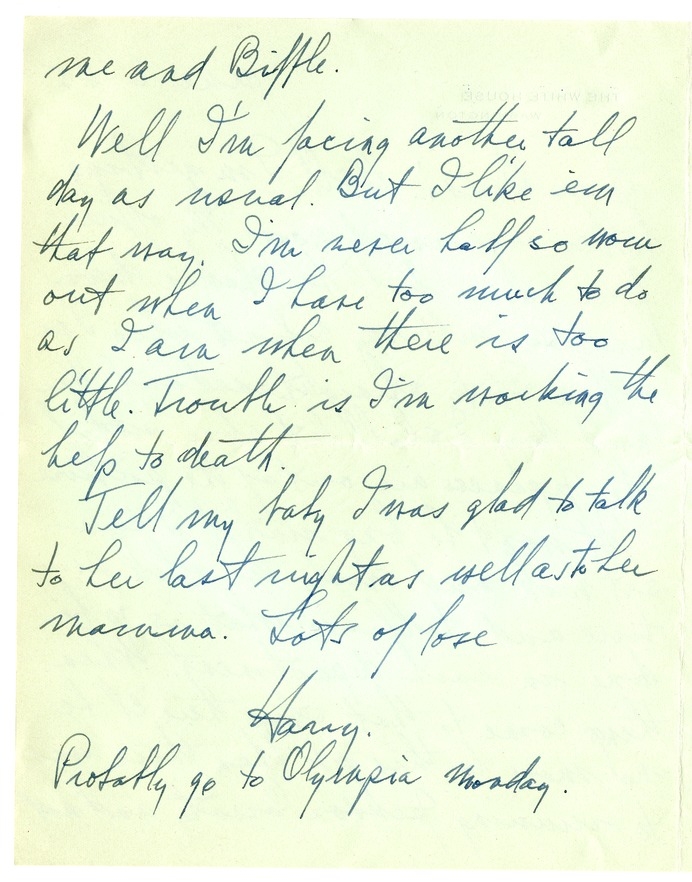 me and Biffle.
Well I'm facing another tall
day as usual. But I like em
that way. I'm never half so worn
out when I have too much to do
as I am when there is too
little. Trouble is I'm working the
help to death.
Tell my baby I was glad to talk
to her last night as well as to her
mamma. Lots of love
Harry.
Probably go to Olympia Monday.